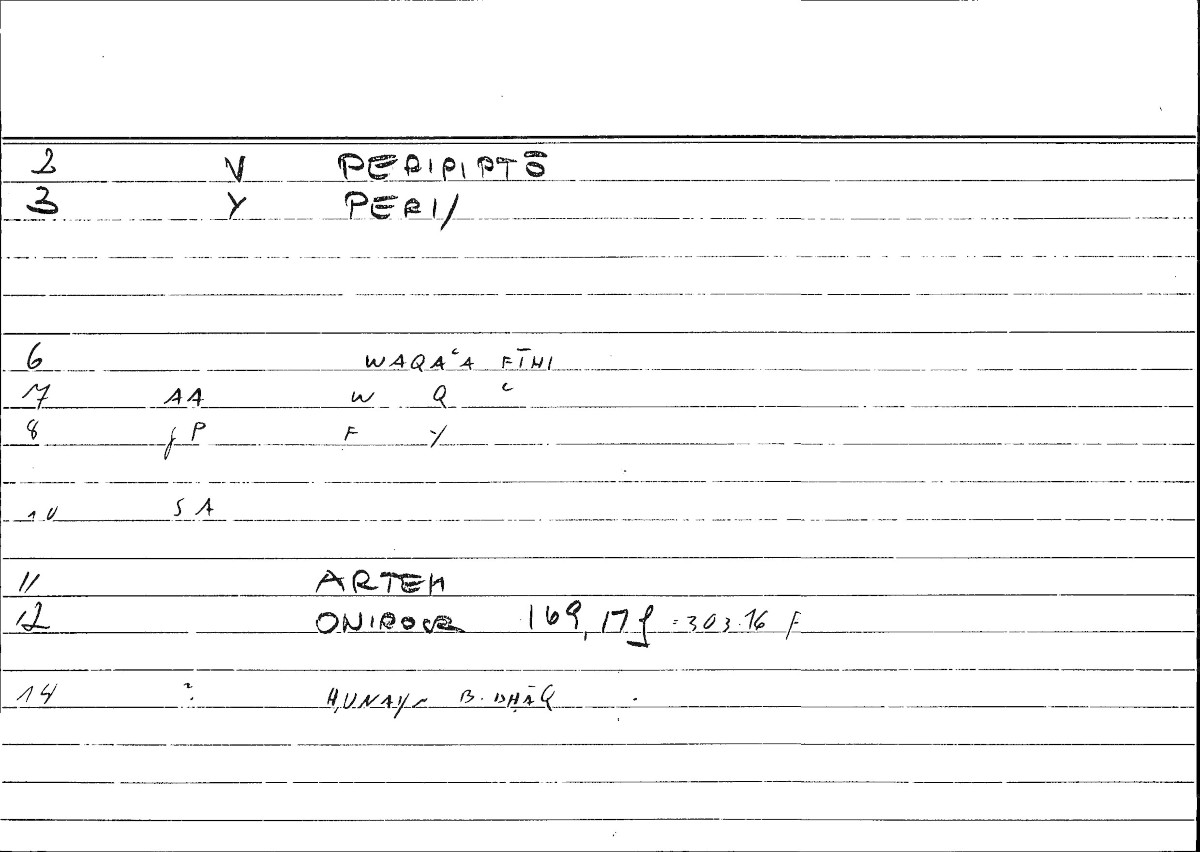 2 V PERIPIPTŌ
3 Y PERI/
6 WAQAʿA FĪHI
7 AA W Q ʿ
8 jP F Y
10 SA
11 ARTEM
12 ONIROCR 169,17f = 303.16 F
14 ? ḤUNAYN B. ISḤĀQ